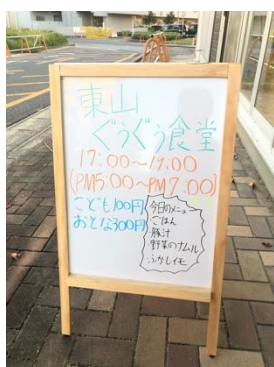 東山
ぐうぐう食堂
17:00〜19:00
(PM5:00〜PM7:00)
こども100円
おとな300円
今日のメニュー
ごはん
豚汁
野菜のナムル
ふかしイモ